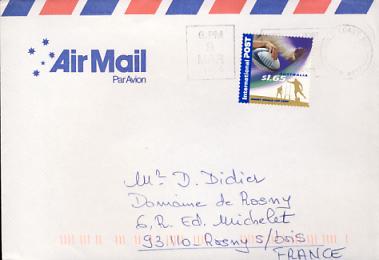 Air Mail
Par Avion
6 PM
8
MAR
International POST
AUSTRALIA
$1.65
Mr D. Didier
Domaine de Rosny
6, R. Ed. Michelet
93110 Rosny s/bois
FRANCE